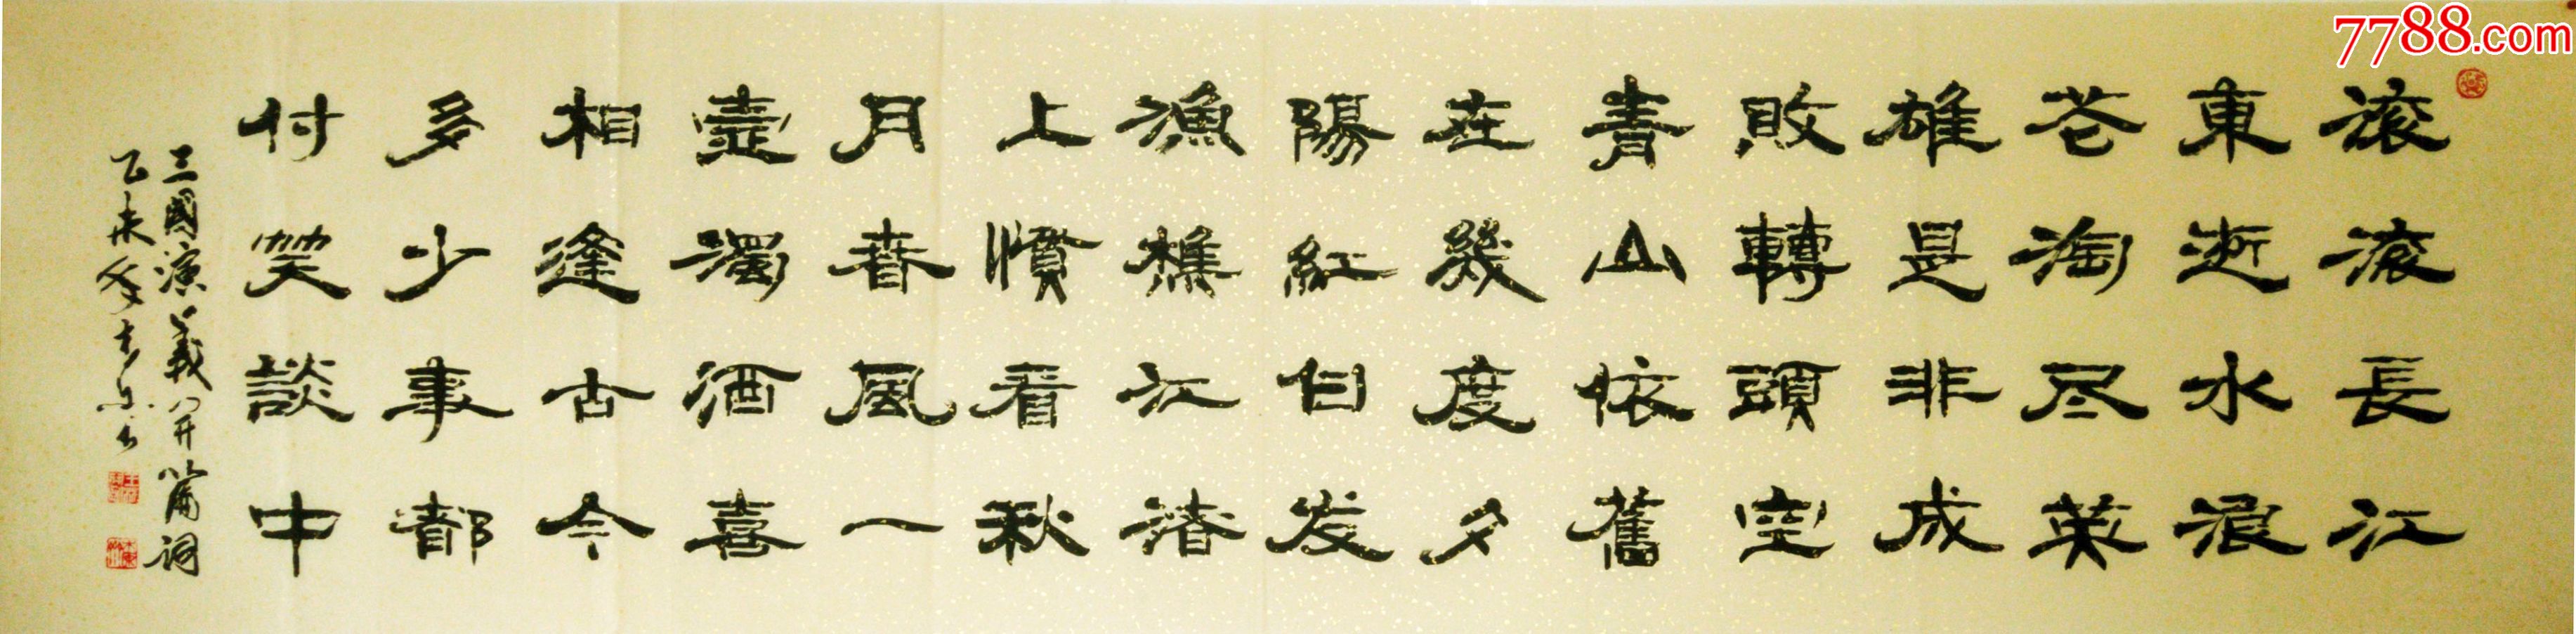 滚滚長江
東逝水浪
花淘尽英
雄是非成
敗轉頭空
青山依舊
在幾度夕
陽紅白发
漁樵江渚
上慣看秋
月春風一
壺濁酒喜
相逢古今
多少事都
付笑談中
三國演義开篇词
乙未
7788.com